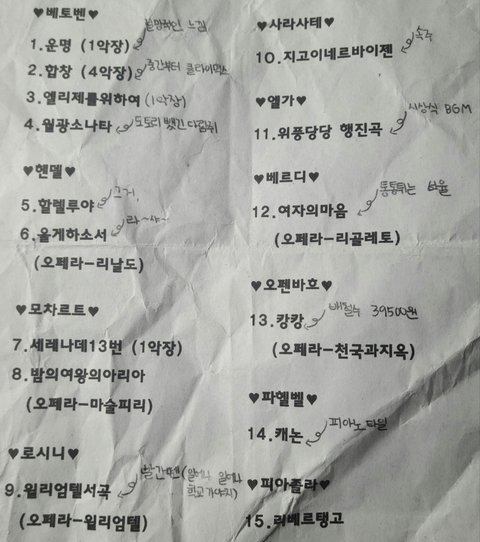 ♥베토벤♥
1.운명 (1악장)
2.합창 (4악장) 중간부터 클라이막스
3.엘리제를위하여 (1악장)
4.월광소나타 도토리 뺏긴 다람쥐
♥헨델♥
5.할렐루야 그거,
6.울게하소서 라~샤~
(오페라-리날도)
♥모차르트♥
7.세레나데13번 (1악장)
8.밤의여왕의아리아
(오페라-마술피리)
♥로시니♥
9.윌리엄텔서곡 빨간펜 (일어나 일어나
학교가야지)
(오페라-윌리엄텔)
♥사라사테♥
10.지고이네르바이젠 속주
♥엘가♥
11.위풍당당 행진곡 시상식 BGM
♥베르디♥
12.여자의마음 통통튀는 선율
(오페라-리골레토)
♥오펜바흐♥
13.캉캉 39500원
(오페라-천국과지옥)
♥파헬벨♥
14.캐논 피아노타일
♥피아졸라♥
15.리베르탱고